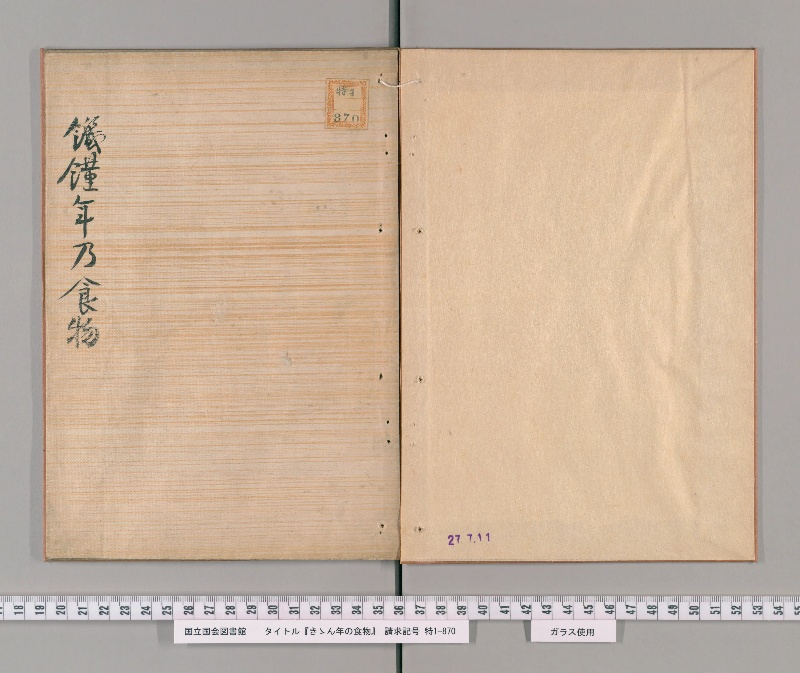 饑饉年乃食物
特1
870
27 7.11
17 18 19 20 21 22 23 24 25 26 27 28 29 30 31 32 33 34 35 36 37 38 39 40 41 42 43 44 45 46 47 48 49 50 51 52 53 54 55
国立国会図書館 タイトル『きゝん年の食物』 請求記号 特1-870
ガラス使用